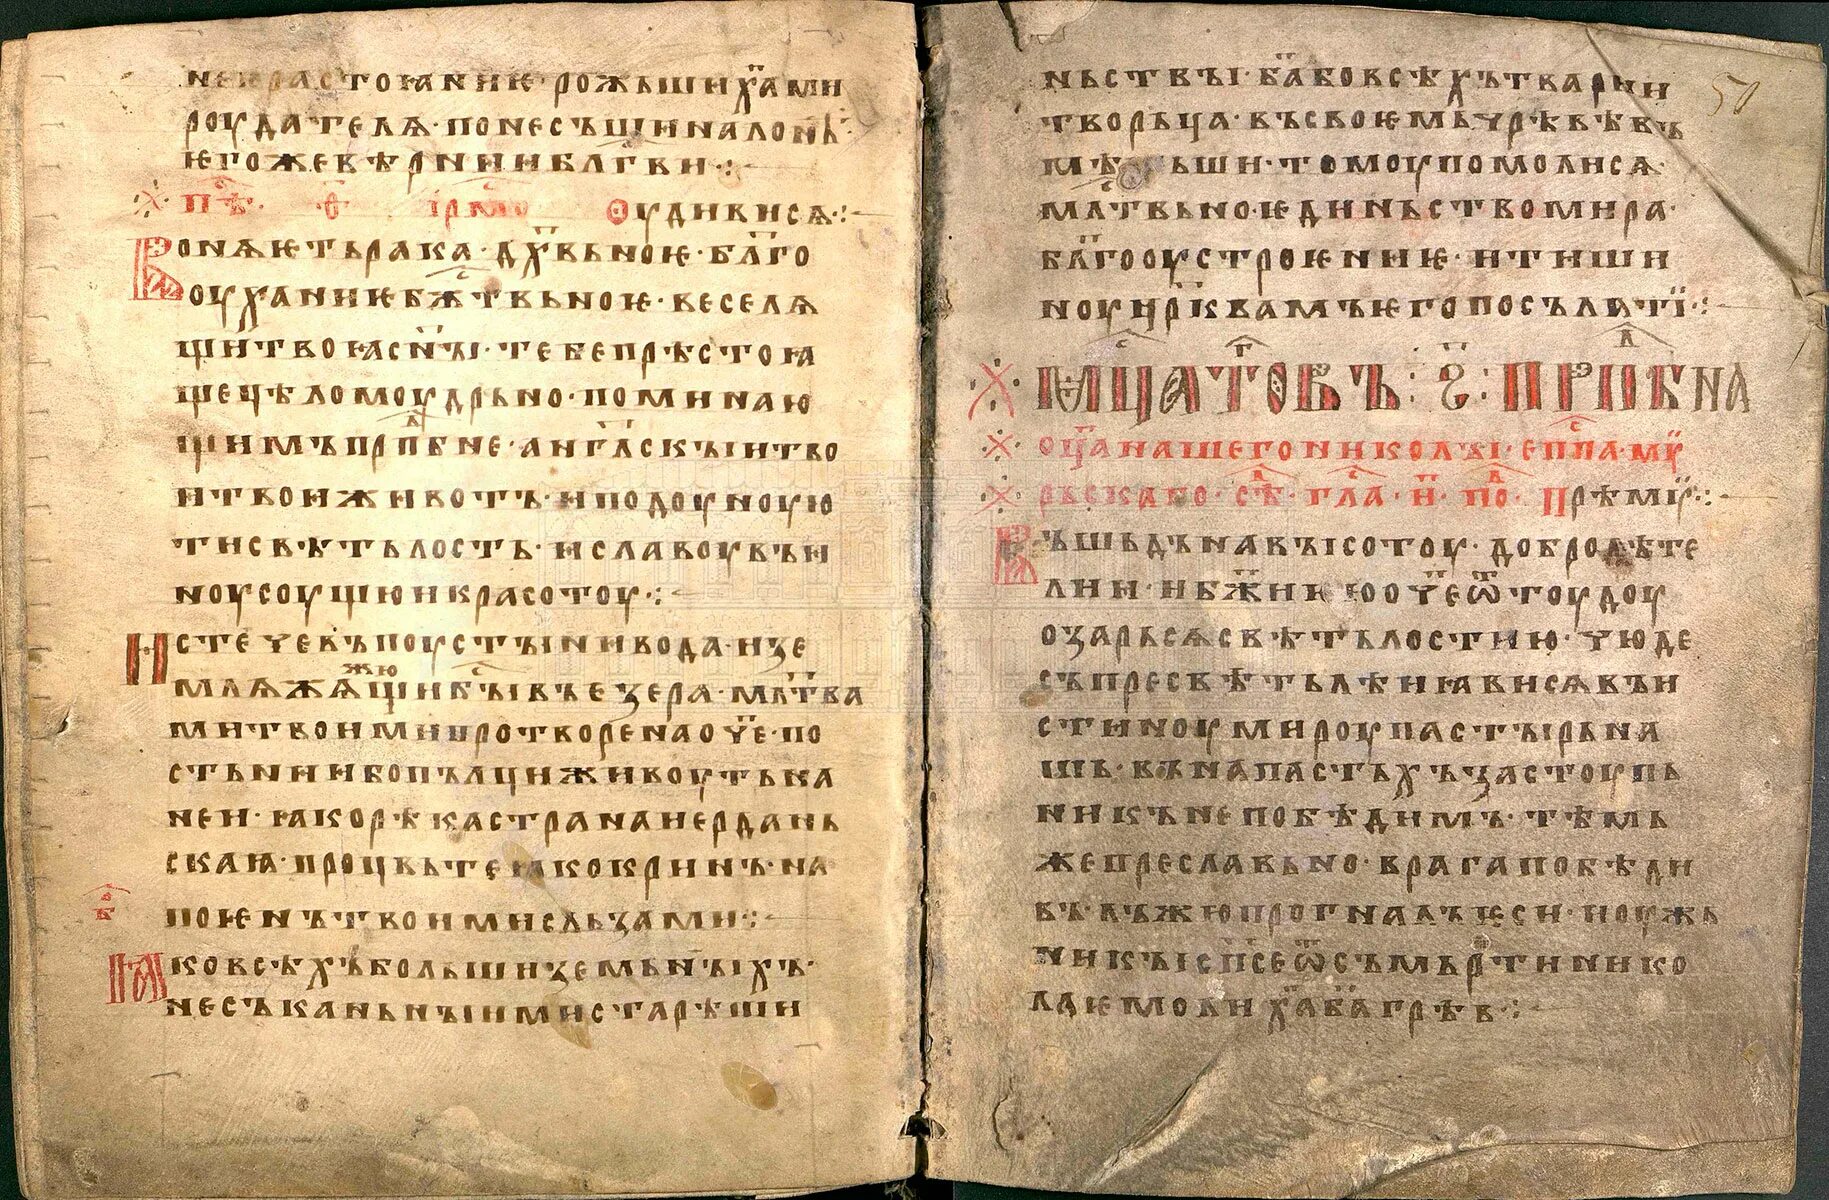 некрастоꙗниѥ· рожьши х҃а ми
роудателѧ· понесъши на лонѣ·
ѥгоже вѣрнии бл҃гви·:
пѣ҃· ѳ҃ ірмо Ѹдивисѧ·:
Вонѧѥть рака· дх҃вьноѥ· бл҃го
оуханиѥ бж҃ствьноѥ· веселѧ
щи твоꙗ сн҃ꙑ· тебе прѣстоꙗ
ще цѣломоудрьно· поминаю
щимъ прп҃бне· анг҃лскꙑи тво
и твои животъ· и подоуноую
ти свѣтьлость· и славоу въи
ноу соущю и красотоу·:
Истече въ поустꙑни вода· изе
млѧжѧщи бꙑ въ езера· мл҃тва
жю
ми твоими протворена оч҃е· по
стьнии бо пълци живоуть ва
неи· ꙗко рѣка страна иердань
скаꙗ· процвьте ꙗко кринъ· на
поѥнъ твоими сльзами·:
б҃о
Ꙗко всѣхъ больши земьнꙑхъ·
несъканьнꙑими старѣиши
ньствꙑ· б҃а бо всѣхъ твари и
творьца· въ своемь чрѣвѣ въ
мѣ ьши· томоу помолисѧ·
мл҃твьно· ѥдиньство мира·
бл҃гооустроѥниѥ· и тиши
ноу цр҃квамъ ѥго посълати·:
Мц҃а тогⷪ въ· ѕ҃· прп҃б на
оц҃а нашего николꙑ· еп҃па· мѵ
рьскаго· сѣⷣ· гл҃а· и҃· поⷣ· Прѣмⷣ·:
Въшьдъ на вꙑсотоу· добродѣте
лии· и бж҃иѥю оч҃е ѿтоудоу
озарьсѧ свѣтьлостию· чюде
съ пресвѣтьлѣи ꙗвисѧ въи
стиноу мироу пастꙑрь на
шь· въ напастьхъ застоупь
никъ непобѣдимъ· тѣмь
же преславьно· врага побѣди
въ· лъжю прогналъ ѥси· и оужь
никꙑ сп҃се ѿ съмьрти нико
лаѥ моли х҃а б҃а грѣв·:
50